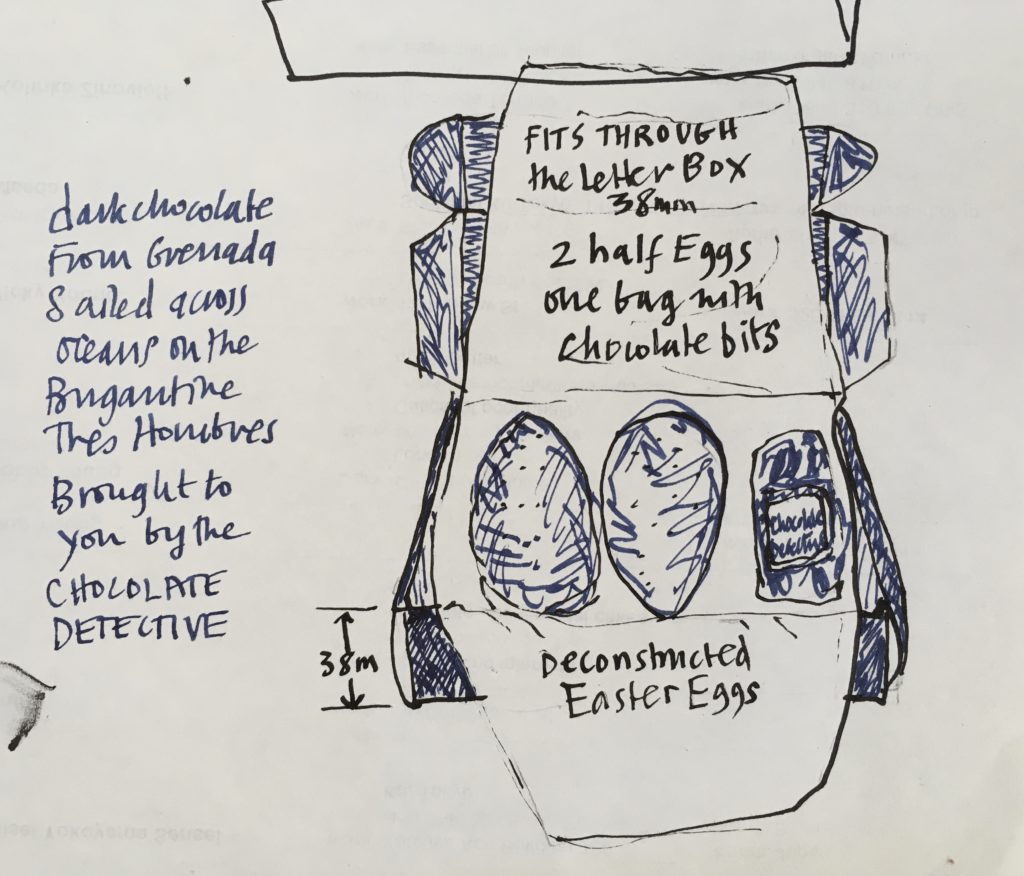 dark chocolate
From Grenada
Sailed across
oceans on the
Brigantine
Tres Hombres
Brought to
you by the
CHOCOLATE
DETECTIVE
FITS THROUGH
the Letter Box
38mm
2 half Eggs
one bag with
chocolate bits
Chocolate
Detective
38m
Deconstructed
Easter Eggs